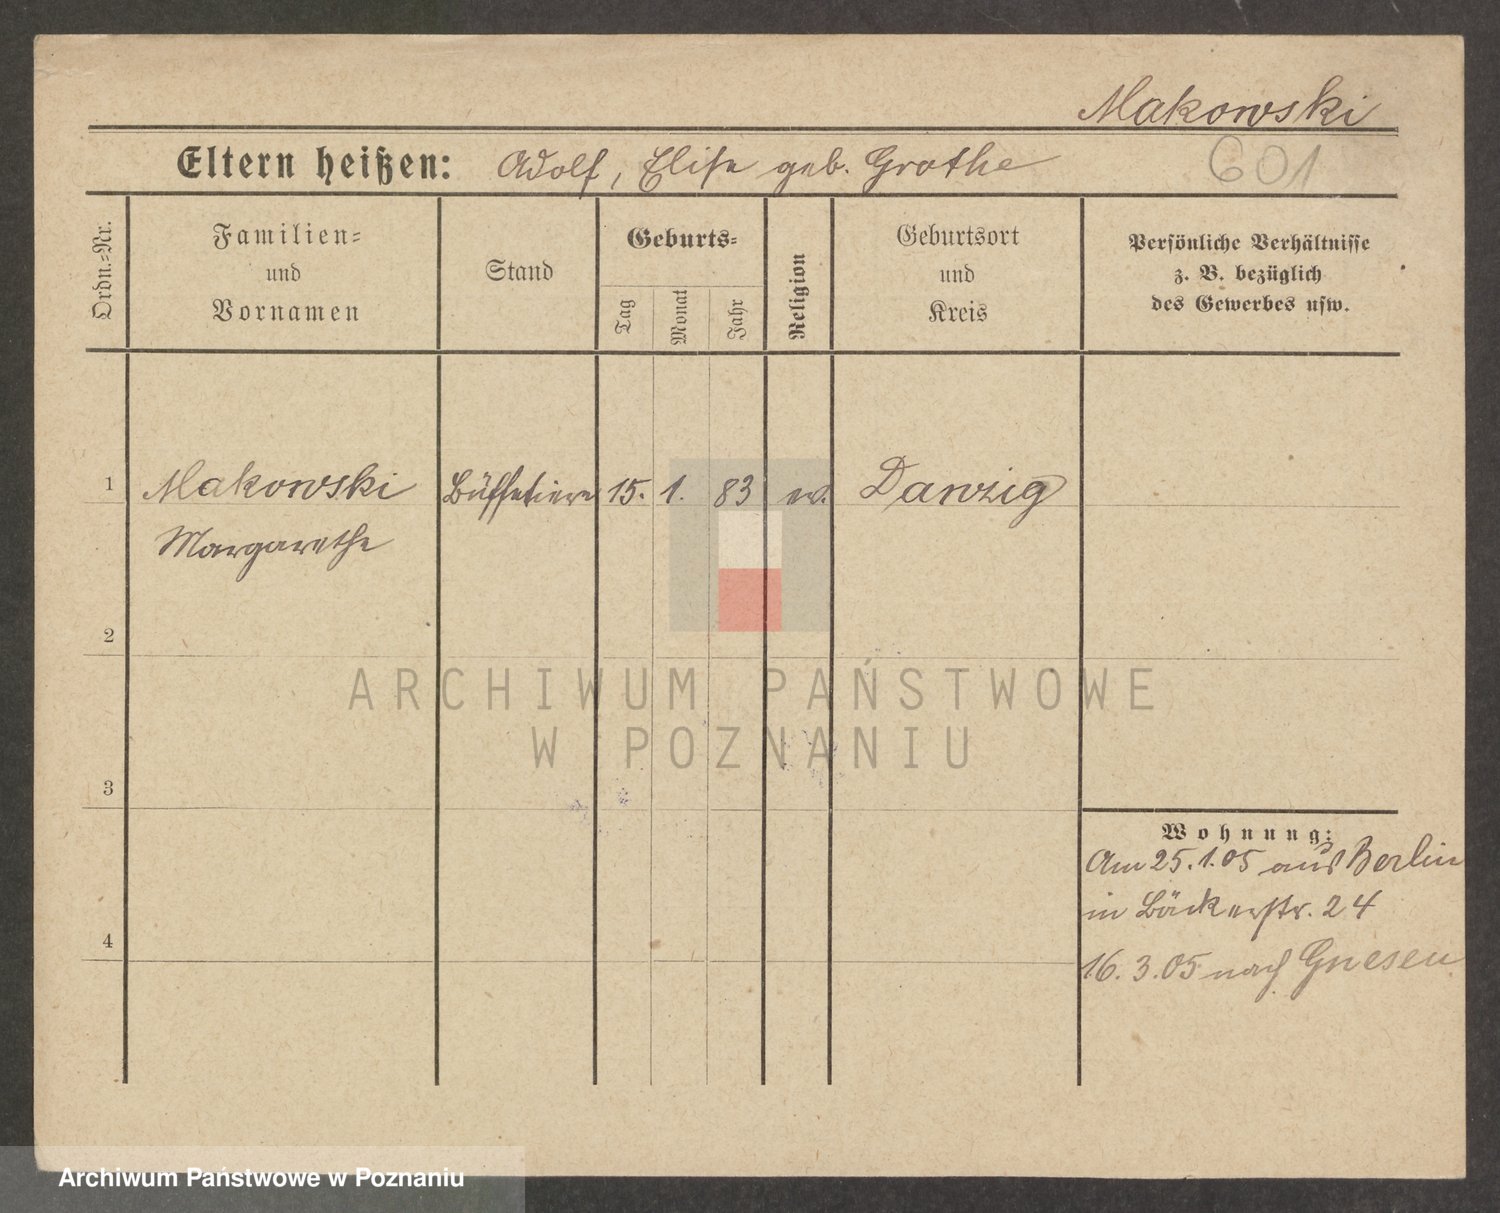 Makowski
Eltern heißen: Adolf, Elise geb. Grothe
601
Ordn.-Nr.
Familien-
und
Vornamen
Stand
Geburts-
Tag
Monat
Jahr
Religion
Geburtsort
und
Kreis
Persönliche Verhältnisse
z. B. bezüglich
des Gewerbes usw.
1 Makowski Büffetiere 15. 1. 83 ev. Danzig
Margarethe
2
ARCHIWUM PAŃSTWOWE
W POZNANIU
3
Wohnung:
Am 25.1.05 aus Berlin
in Bäckerstr. 24
4
16.3.05 nach Gnesen
Archiwum Państwowe w Poznaniu